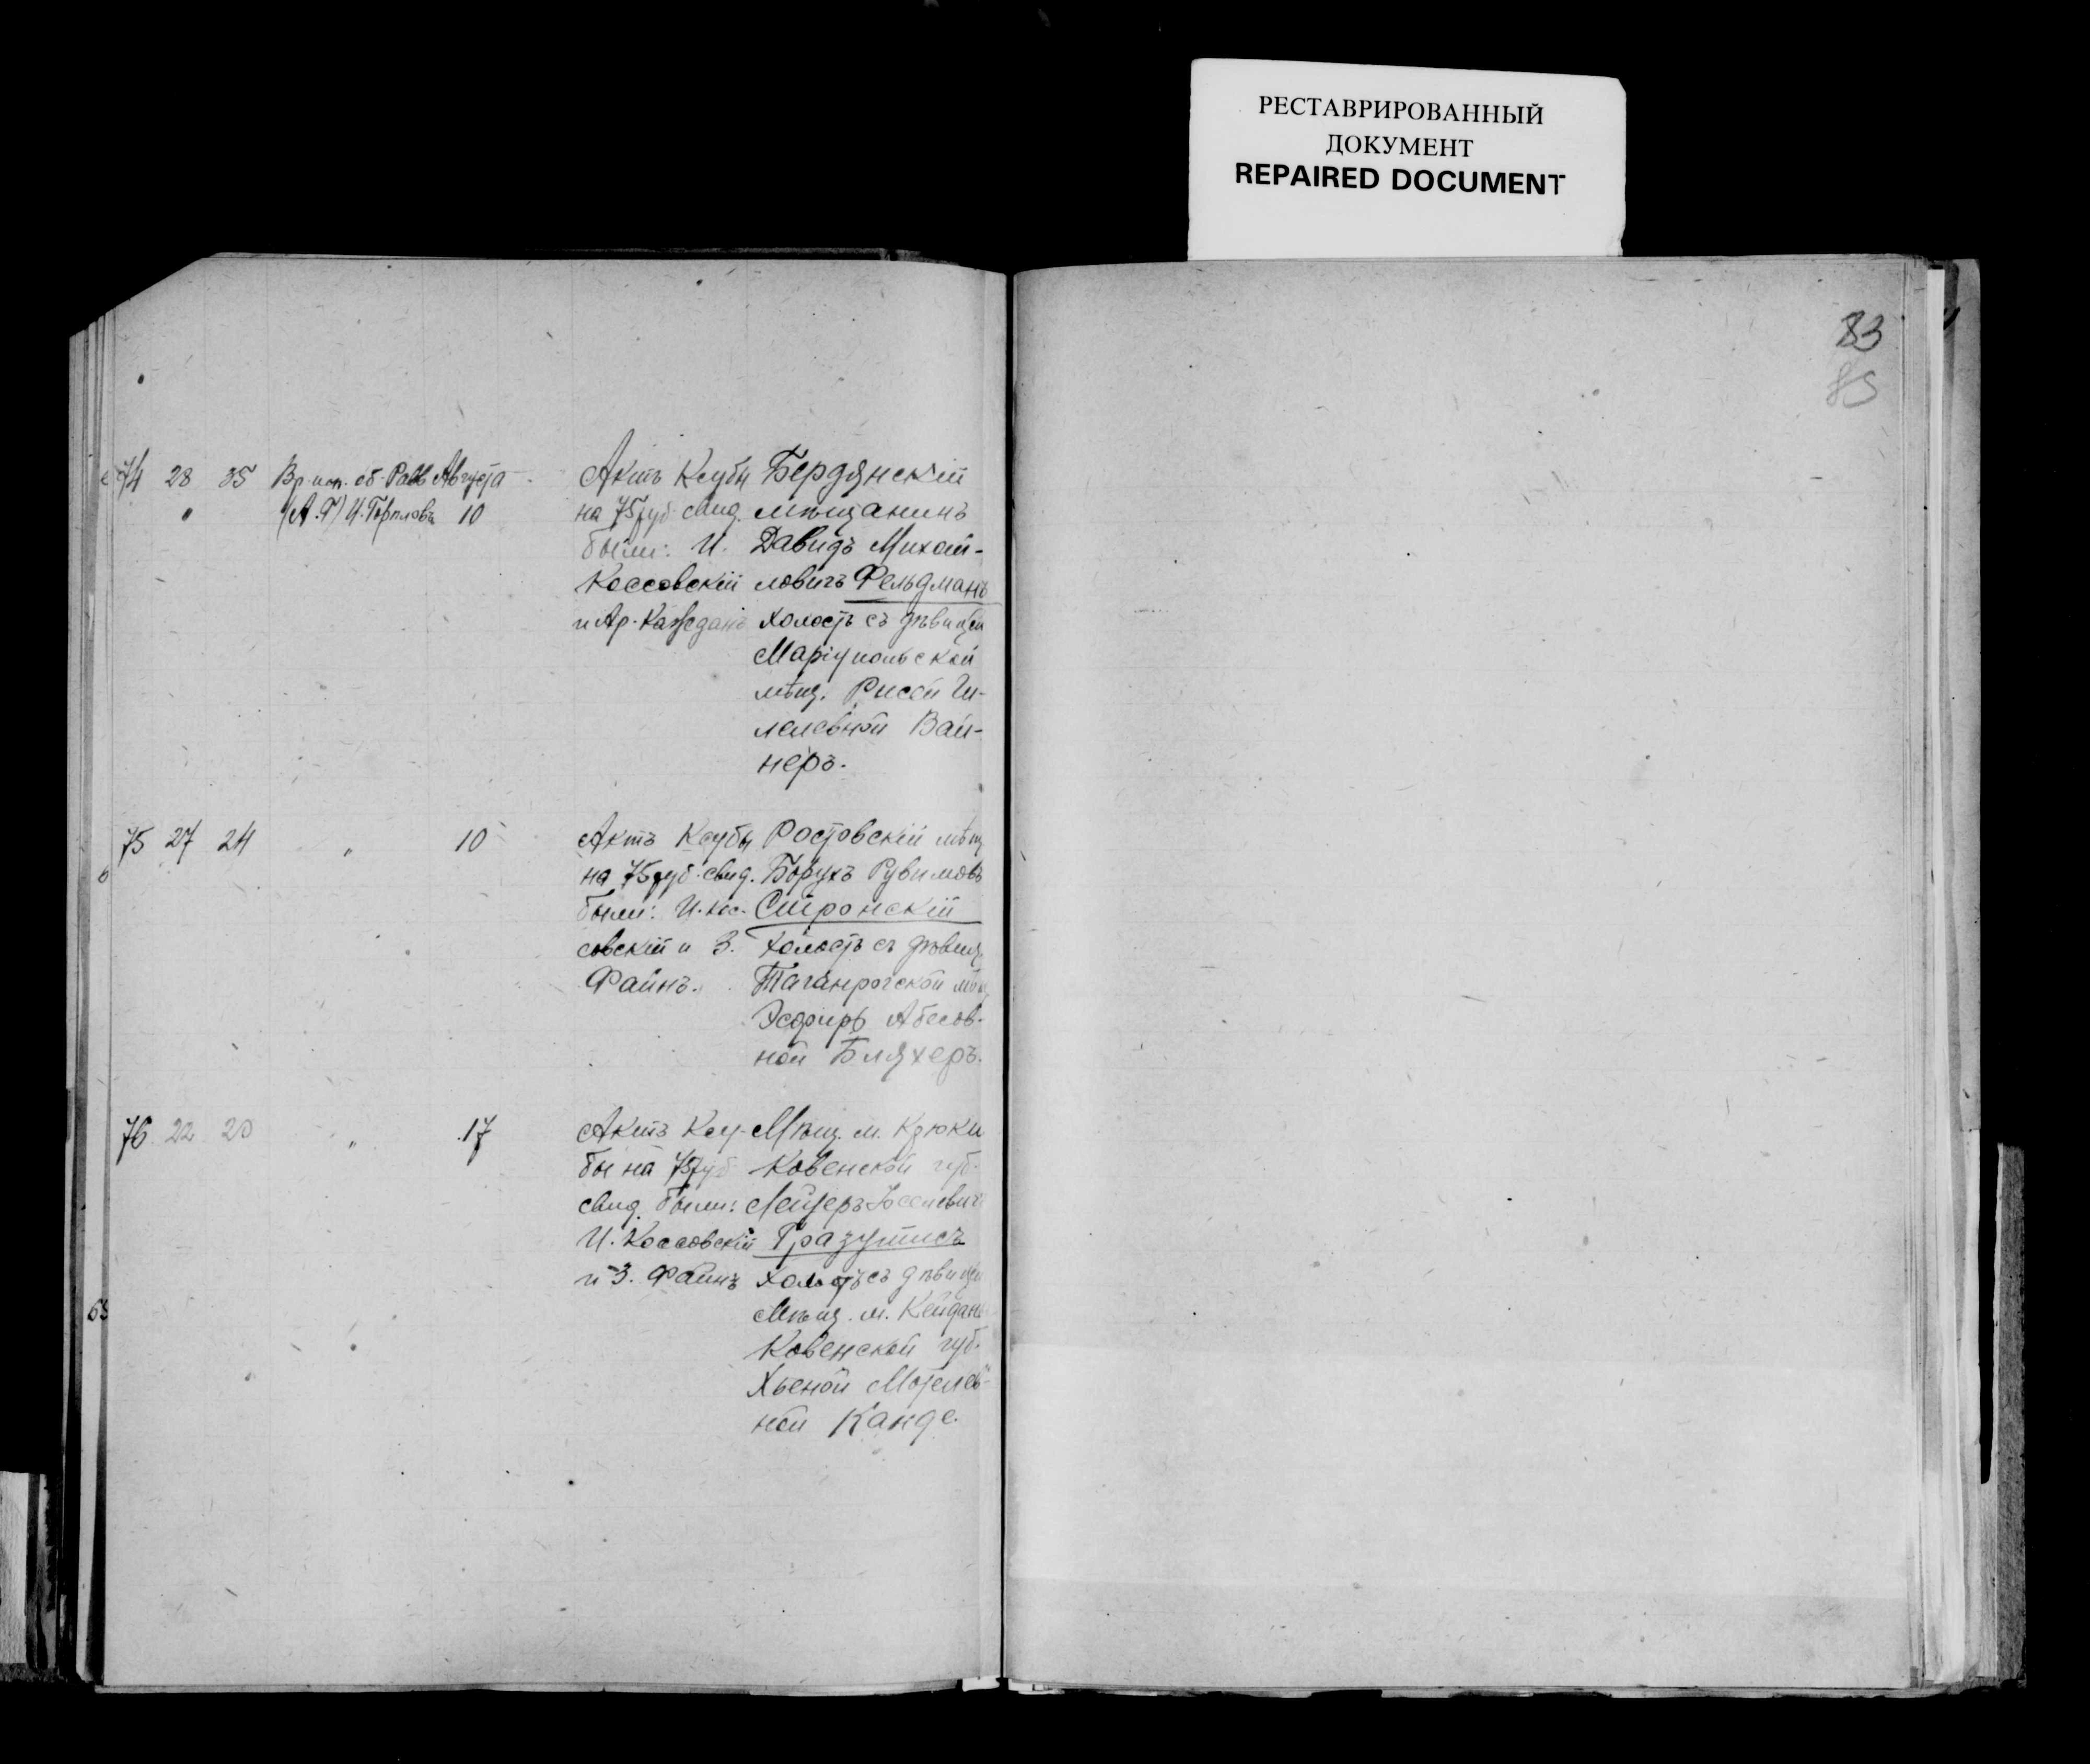 РЕСТАВРИРОВАННЫЙ
ДОКУМЕНТ
REPAIRED DOCUMENT
83
85
74 28 35 Вр. исп. об. Равв Августа
" (А.Г) И. 10
Актъ Ксубы
на 75 руб. свид.
были: И.
Коссовскій
и Ар. Кажданъ
Бердянскій
мѣщанинъ
Давидъ Михай-
ловичъ Фельдманъ
холостъ съ дѣвицей
Маріупольской
мѣщ. Рисей Ги-
лелевной Вай-
неръ.
75 27 24 " 10
Актъ Ксубы
на 75 руб. свид.
были: И. Кос-
совскій и З.
Файнъ.
Ростовскій мѣщ
Борухъ Рувимовъ
Смиронскій
холостъ съ дѣвиц.
Таганрогской мѣщ
Эсфирь Абесов-
ной Бляхеръ.
76 22 20 " 17
Актъ Ксу-
бы на 75 руб
свид. были:
И. Коссовскій
и З. Файнъ
Мѣщ. м. Крюки
Ковенской губ.
Лейзеръ Іоселевич
Гразутисъ
холостъ съ дѣвицей
Мѣщ. м. Кейданъ
Ковенской губ.
Хьеной Мотелев-
ной Канде.